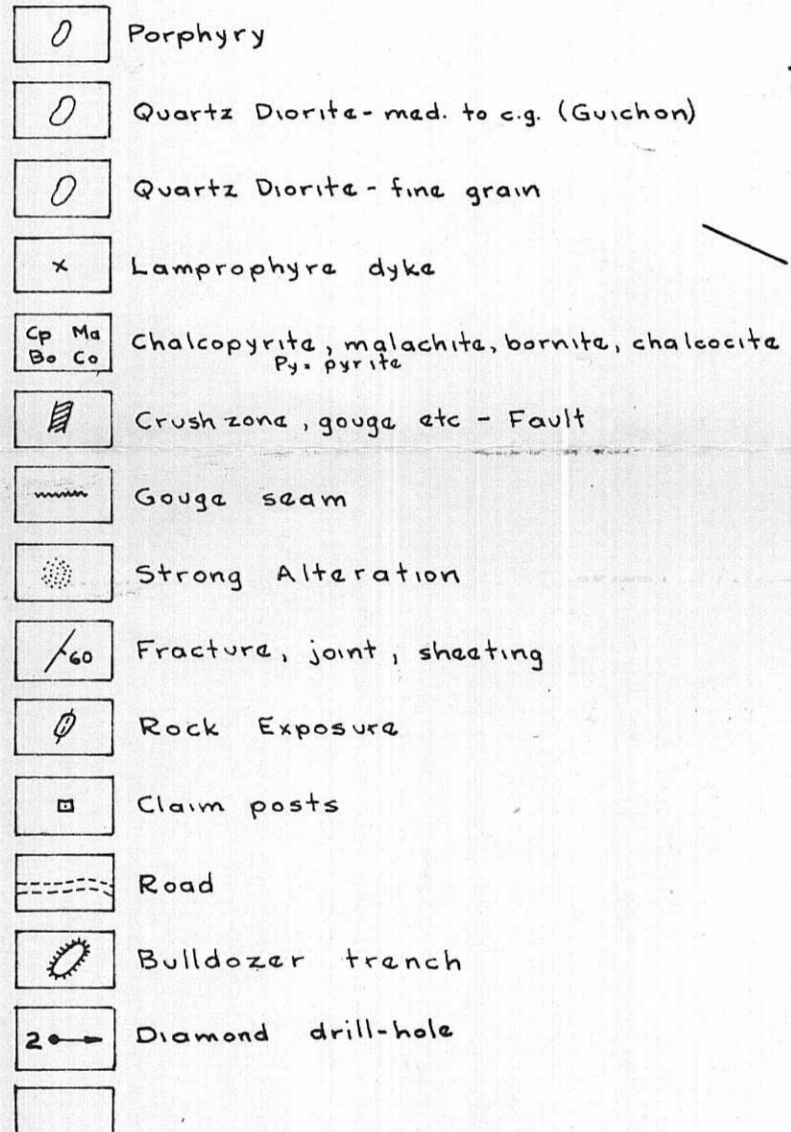 Porphyry
Quartz Diorite - med. to c.g. (Guichon)
Quartz Diorite - fine grain
x Lamprophyre dyke
Cp Ma
Bo Co
Chalcopyrite, malachite, bornite, chalcocite
Py. pyrite
Crush zone, gouge etc - Fault
Gouge seam
Strong Alteration
60 Fracture, joint, sheeting
Rock Exposure
Claim posts
Road
Bulldozer trench
2 Diamond drill-hole